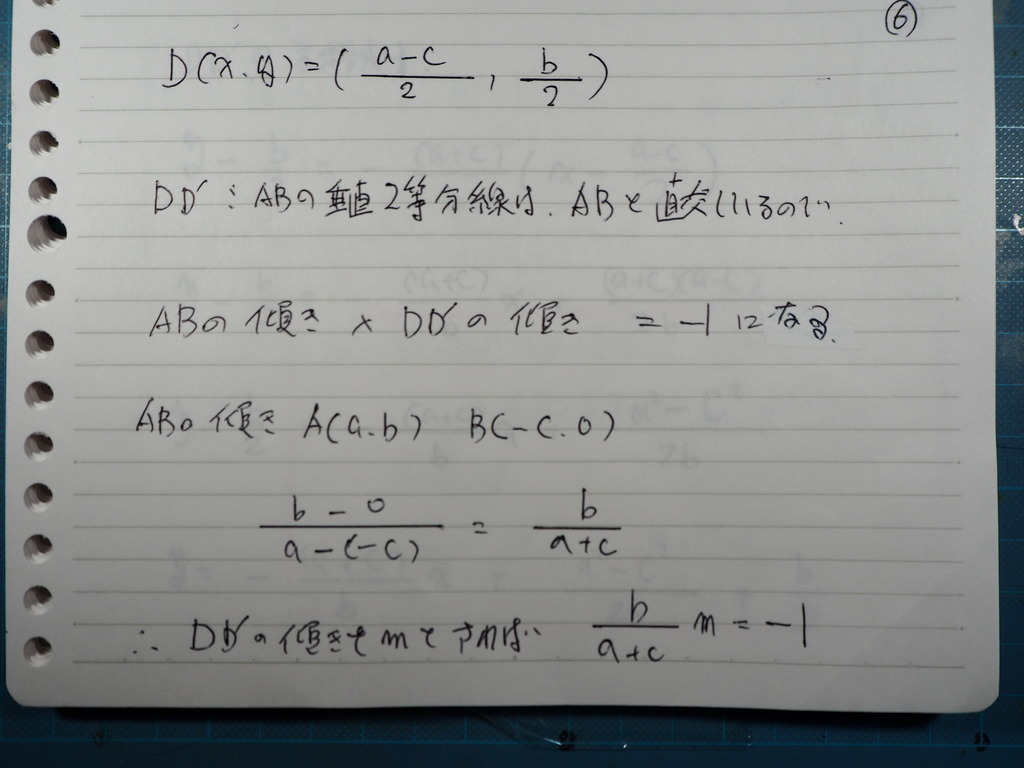 ⑥
D(x.y)=(\frac{a-c}{2}, \frac{b}{2})
DD′:ABの垂直2等分線は.ABと直交しているので.
ABの傾き×DD′の傾き = -1になる.
ABの傾き A(a.b) B(-c.0)
\frac{b-0}{a-(-c)} = \frac{b}{a+c}
∴ DD′の傾きをmとすれば \frac{b}{a+c} m = -1